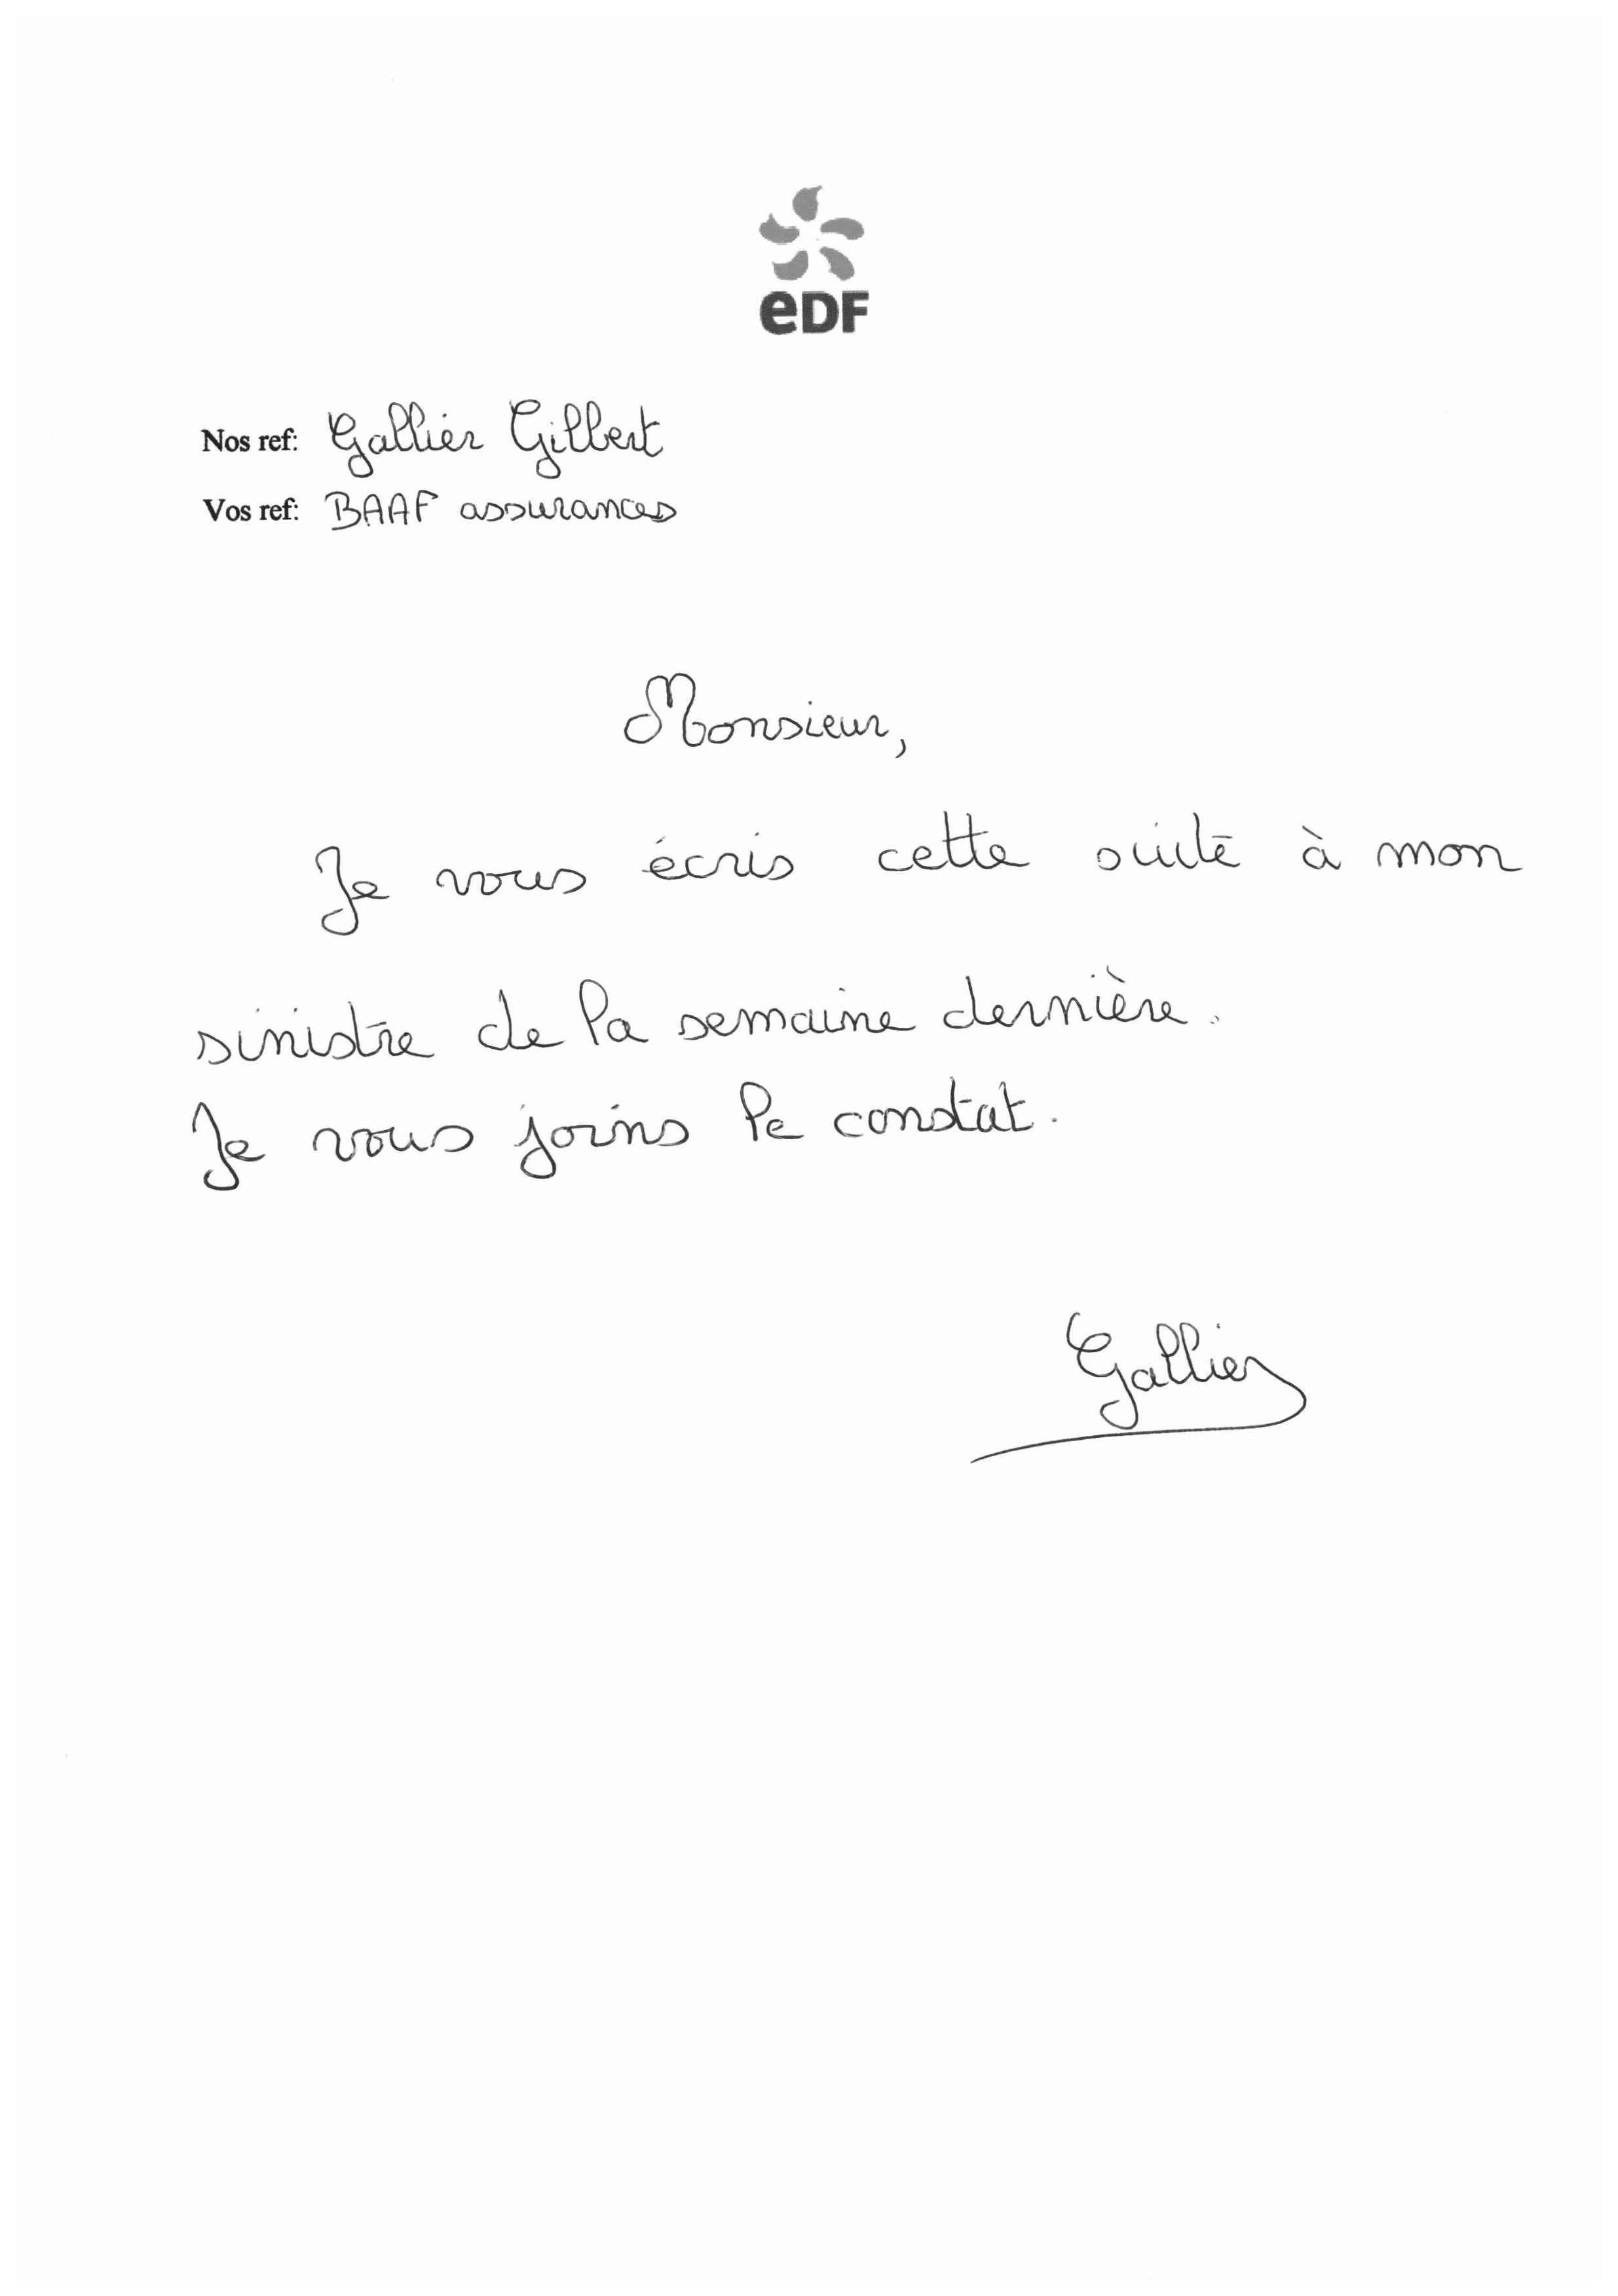 eDF
Nos ref: Gallier Gilbert
Vos ref: BAAF assurances
Monsieur,
Je vous écris cette suite à mon
sinistre de la semaine dernière.
Je vous joins le constat.
Gallier